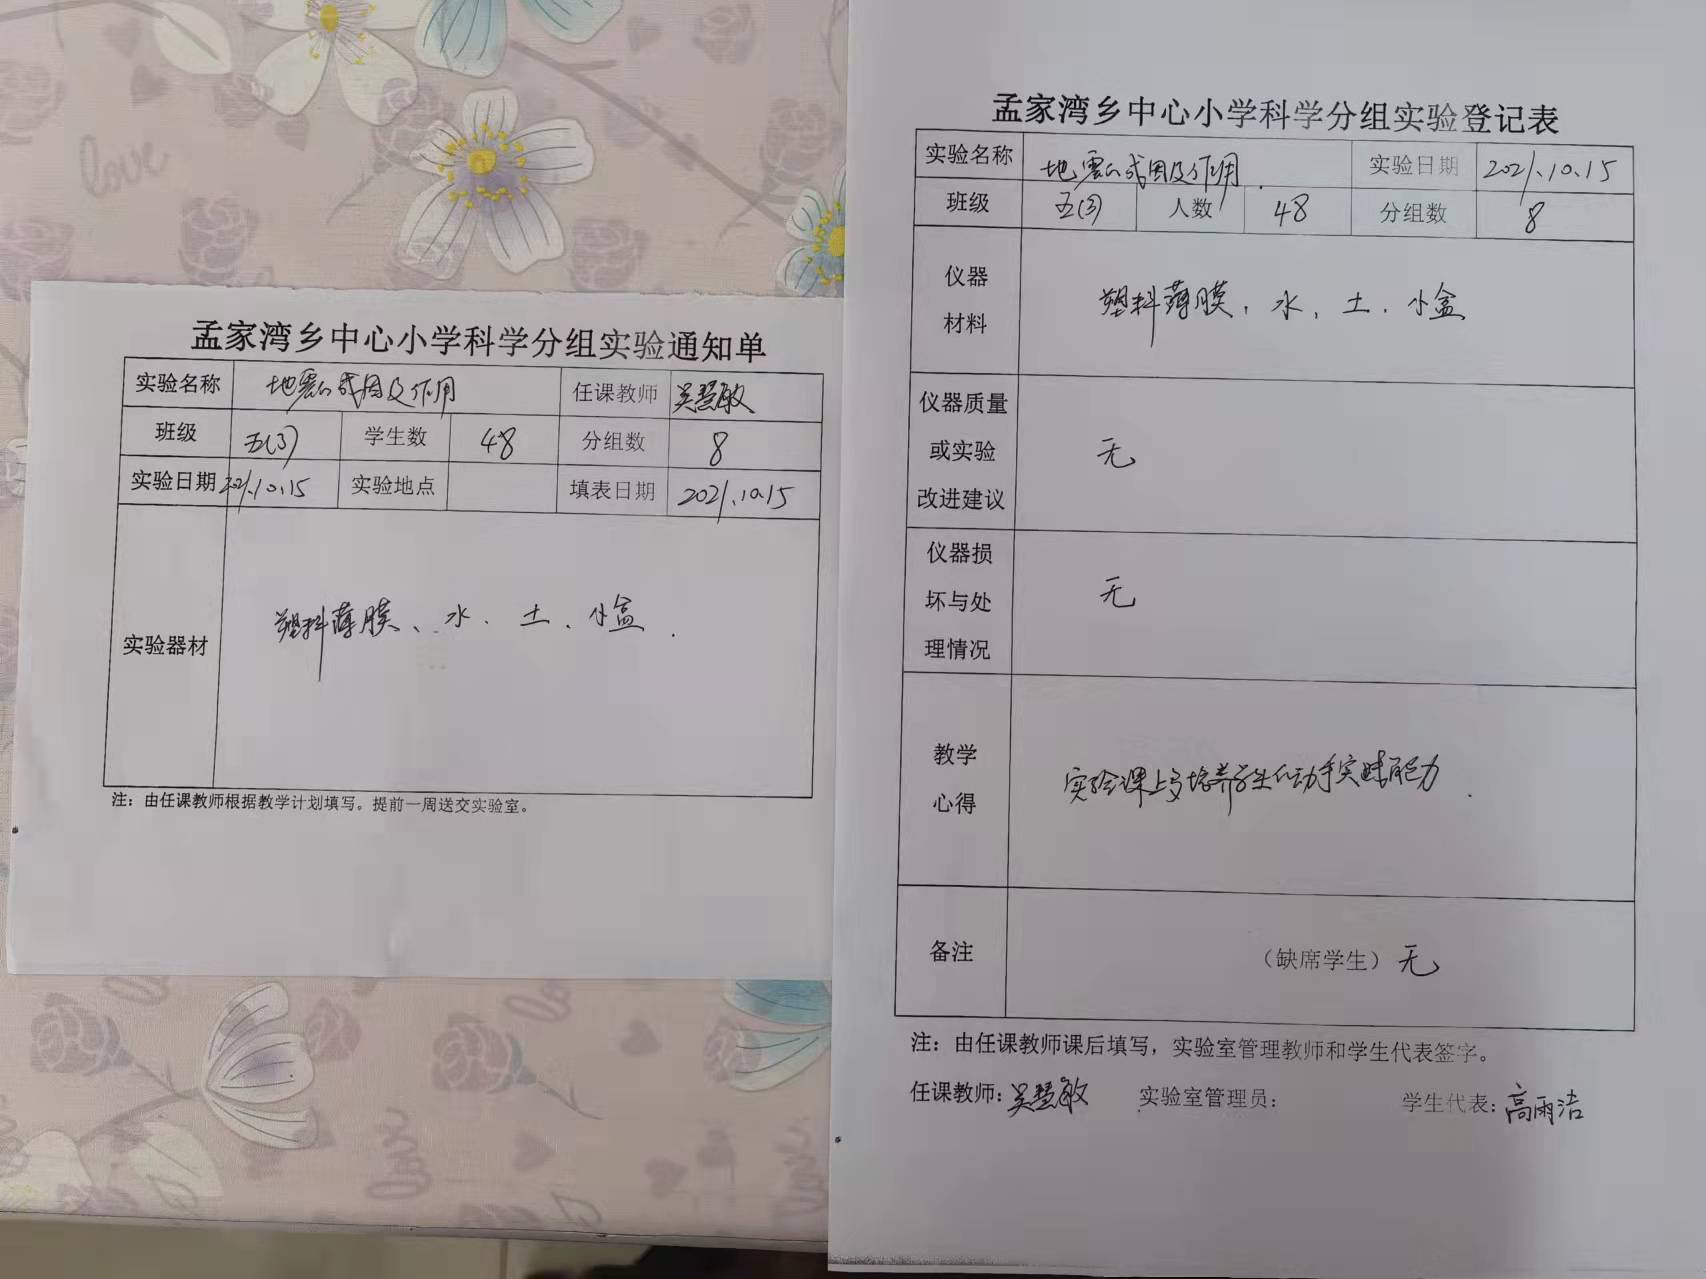 love
孟家湾乡中心小学科学分组实验通知单
实验名称 地震的成因及作用 任课教师 吴慧敏
班级 五(3) 学生数 48 分组数 8
实验日期 2021.10.15 实验地点 填表日期 2021.10.15
实验器材 塑料薄膜、水、土、小盒.
注：由任课教师根据教学计划填写。提前一周送交实验室。
孟家湾乡中心小学科学分组实验登记表
实验名称 地震的成因及作用. 实验日期 2021.10.15
班级 五(3) 人数 48 分组数 8
仪器
材料
塑料薄膜、水、土、小盒
仪器质量
或实验
改进建议
无
仪器损
坏与处
理情况
无
教学
心得
实验课上多培养学生的动手实践能力.
备注 （缺席学生）无
注：由任课教师课后填写，实验室管理教师和学生代表签字。
任课教师：吴慧敏 实验室管理员： 学生代表：高雨洁